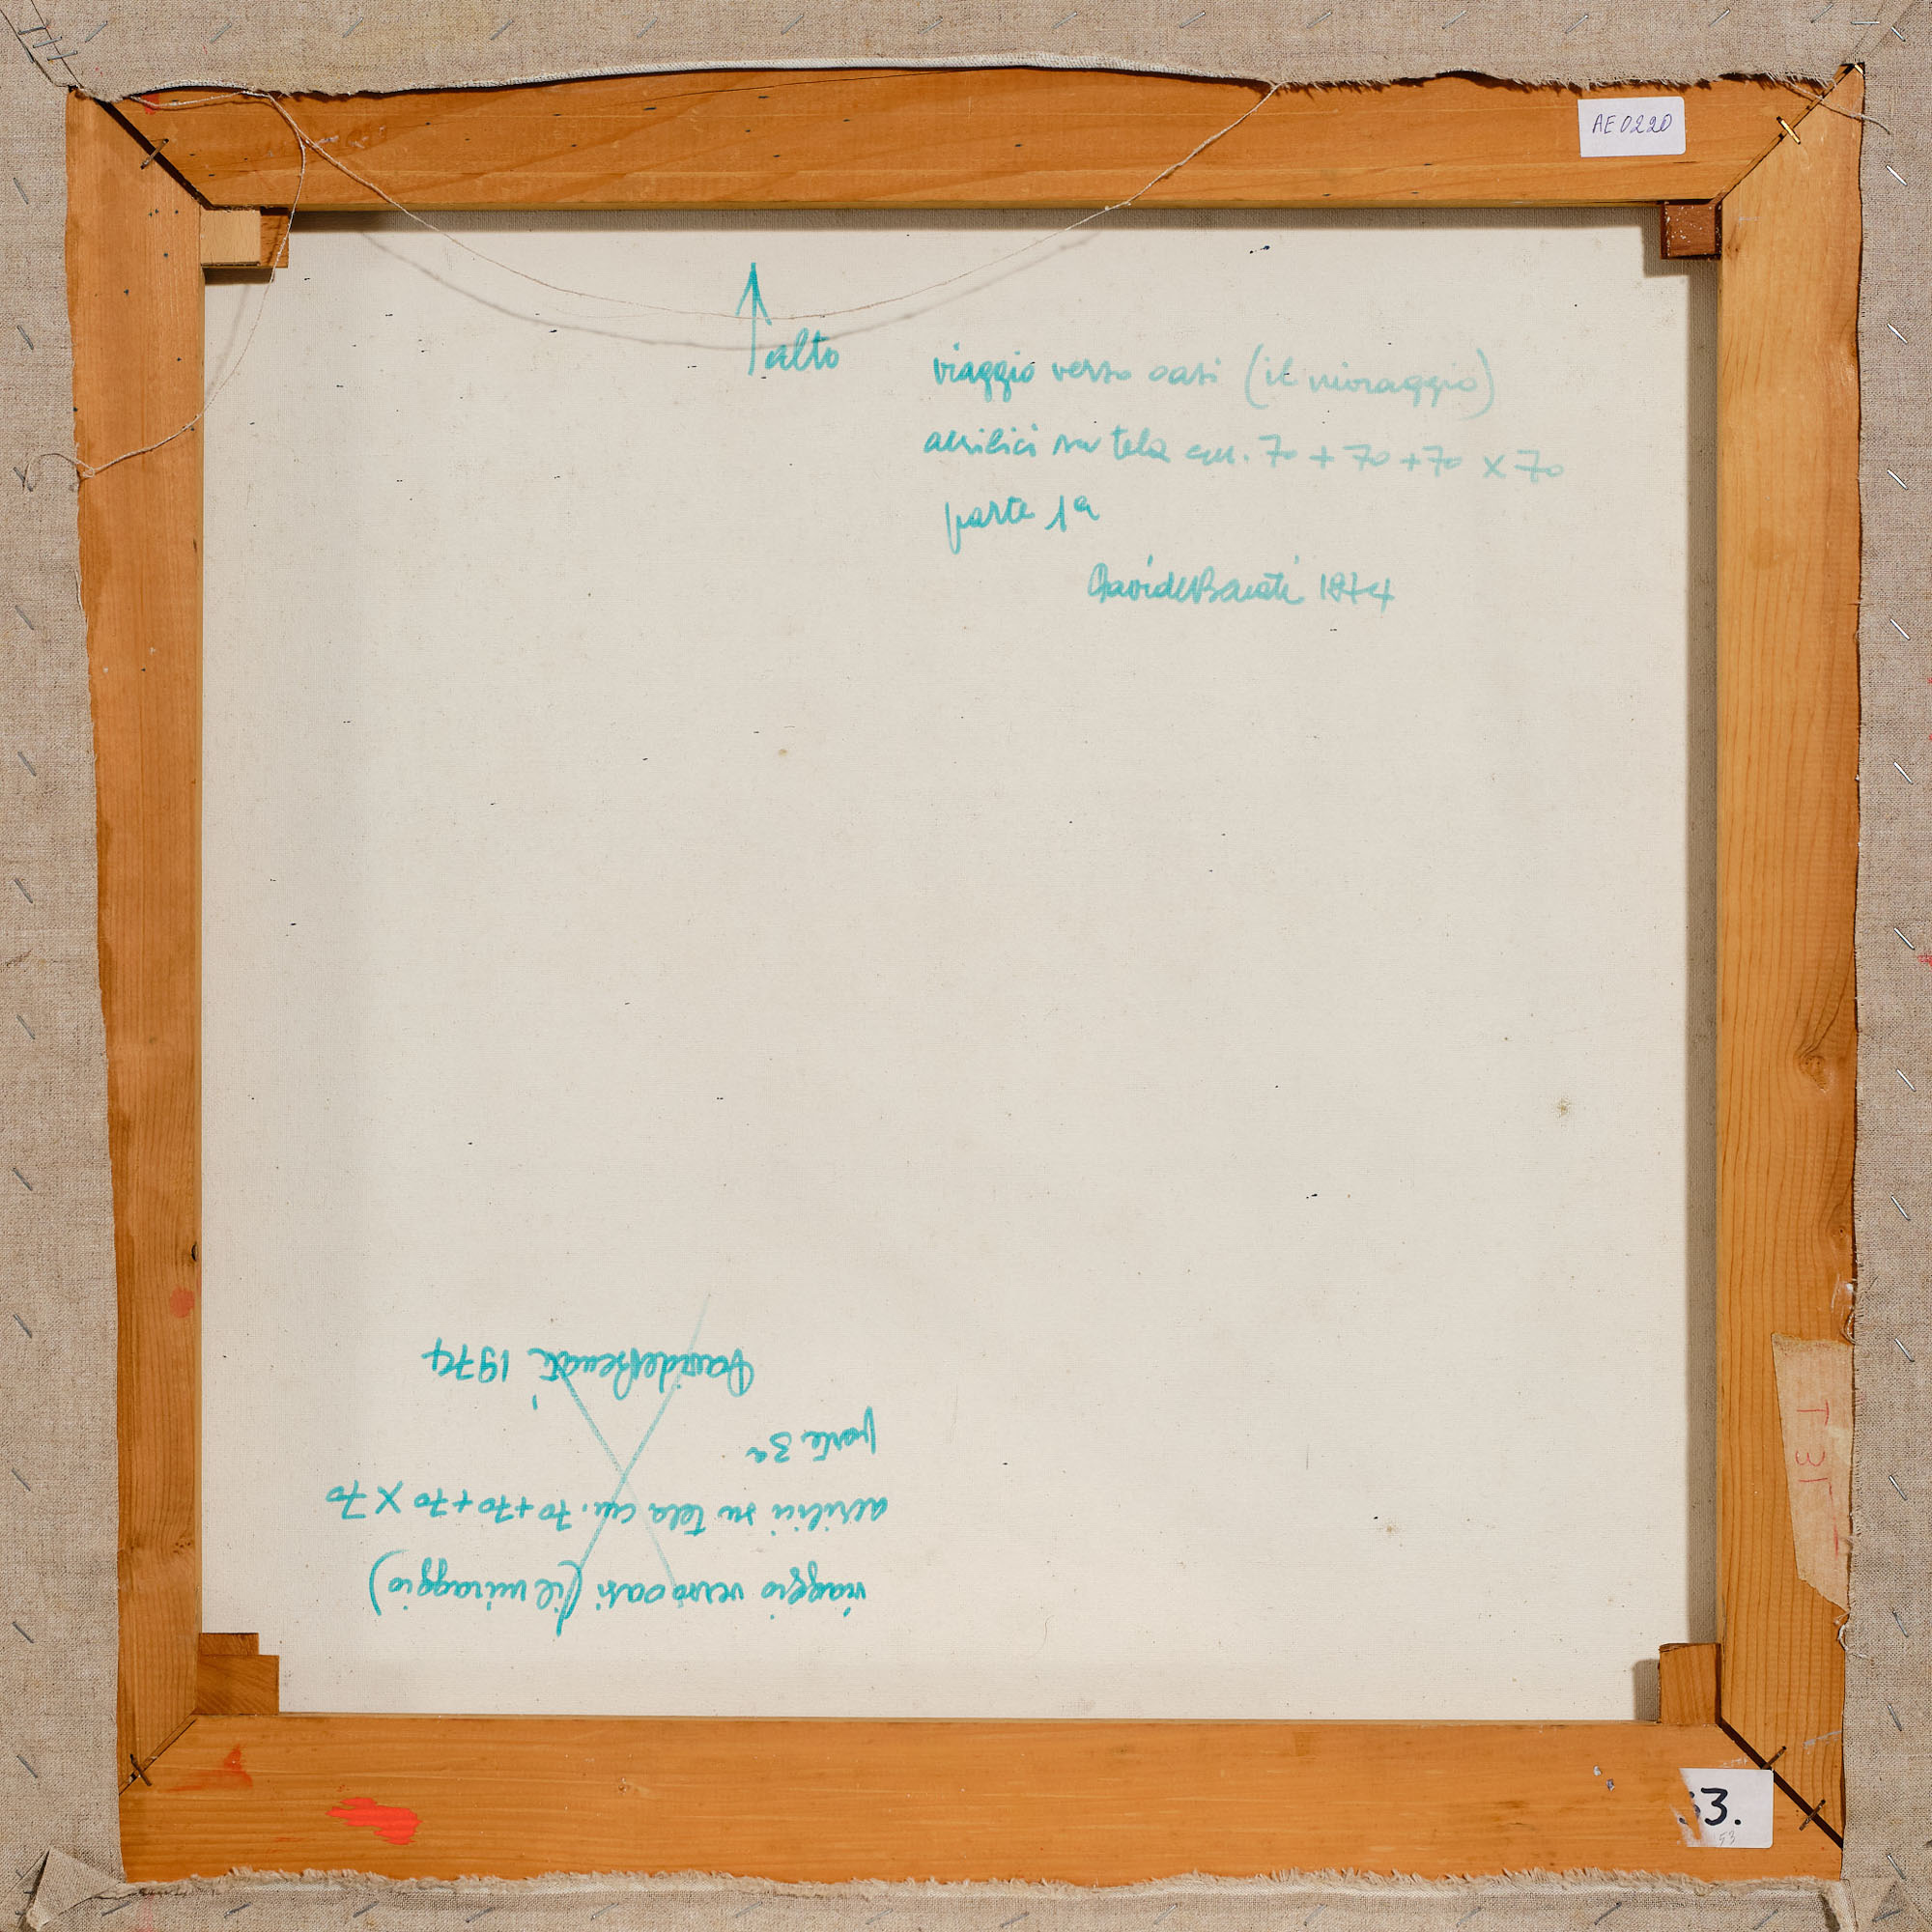 AE0220
alto
viaggio verso oasi (il miraggio)
acrilici su tela cm. 70 + 70 + 70 x 70
parte 1a
Davide Benati 1974
viaggio verso oasi (il miraggio)
acrilici su tela cm. 70+70+70 x 70
parte 3a
Davide Benati 1974
T 31
3.
53